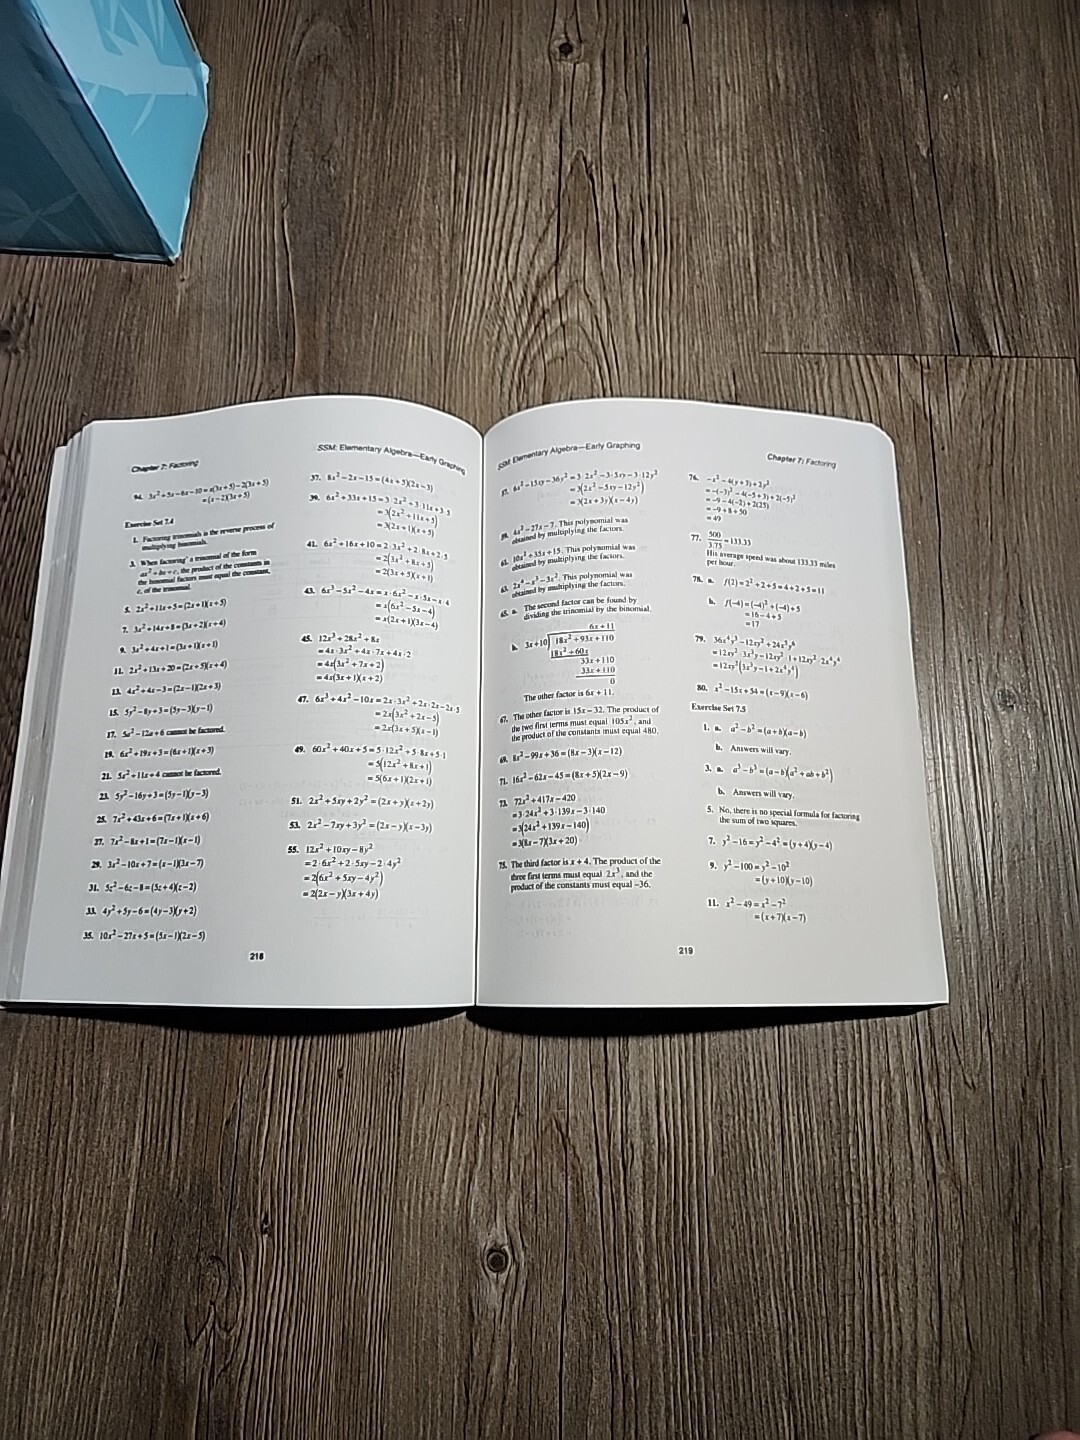 Chapter 7: Factoring
SSM: Elementary Algebra—Early Graphing
94. 3x²+5x−6x−10=x(3x+5)−2(3x+5)
=(x−2)(3x+5)
Exercise Set 7.4
1. Factoring trinomials is the reverse process of
multiplying binomials.
3. When factoring a trinomial of the form
ax²+bx+c, the product of the constants in
the binomial factors must equal the constant,
c, of the trinomial.
5. 2x²+11x+5=(2x+1)(x+5)
7. 3x²+14x+8=(3x+2)(x+4)
9. 3x²+4x+1=(3x+1)(x+1)
11. 2x²+13x+20=(2x+5)(x+4)
13. 4x²+4x−3=(2x−1)(2x+3)
15. 5y²−8y+3=(5y−3)(y−1)
17. 5a²−12a+6 cannot be factored.
19. 6x²+19x+3=(6x+1)(x+3)
21. 5x²+11x+4 cannot be factored.
23. 5y²−16y+3=(5y−1)(y−3)
25. 7x²+43x+6=(7x+1)(x+6)
27. 7x²−8x+1=(7x−1)(x−1)
29. 3x²−10x+7=(x−1)(3x−7)
31. 5z²−6z−8=(5z+4)(z−2)
33. 4y²+5y−6=(4y−3)(y+2)
35. 10x²−27x+5=(5x−1)(2x−5)
37. 8x²−2x−15=(4x+5)(2x−3)
39. 6x²+33x+15=3·2x²+3·11x+3·5
=3(2x²+11x+5)
=3(2x+1)(x+5)
41. 6x²+16x+10=2·3x²+2·8x+2·5
=2(3x²+8x+5)
=2(3x+5)(x+1)
43. 6x³−5x²−4x=x·6x²−x·5x−x·4
=x(6x²−5x−4)
=x(2x+1)(3x−4)
45. 12x³+28x²+8x
=4x·3x²+4x·7x+4x·2
=4x(3x²+7x+2)
=4x(3x+1)(x+2)
47. 6x³+4x²−10x=2x·3x²+2x·2x−2x·5
=2x(3x²+2x−5)
=2x(3x+5)(x−1)
49. 60x²+40x+5=5·12x²+5·8x+5·1
=5(12x²+8x+1)
=5(6x+1)(2x+1)
51. 2x²+5xy+2y²=(2x+y)(x+2y)
53. 2x²−7xy+3y²=(2x−y)(x−3y)
55. 12x²+10xy−8y²
=2·6x²+2·5xy−2·4y²
=2(6x²+5xy−4y²)
=2(2x−y)(3x+4y)
218
SSM: Elementary Algebra—Early Graphing
Chapter 7: Factoring
57. 6x²−15xy−36y²=3·2x²−3·5xy−3·12y²
=3(2x²−5xy−12y²)
=3(2x+3y)(x−4y)
59. 4x²−27x−7. This polynomial was
obtained by multiplying the factors.
61. 10x²+35x+15. This polynomial was
obtained by multiplying the factors.
63. 2x⁴−x³−3x². This polynomial was
obtained by multiplying the factors.
65. a. The second factor can be found by
dividing the trinomial by the binomial.
6x+11
b. 3x+10)18x²+93x+110
18x²+60x
33x+110
33x+110
0
The other factor is 6x+11.
67. The other factor is 15x−32. The product of
the two first terms must equal 105x², and
the product of the constants must equal 480.
69. 8x²−99x+36=(8x−3)(x−12)
71. 16x²−62x−45=(8x+5)(2x−9)
73. 72x²+417x−420
=3·24x²+3·139x−3·140
=3(24x²+139x−140)
=3(8x−7)(3x+20)
75. The third factor is x+4. The product of the
three first terms must equal 2x³, and the
product of the constants must equal −36.
76. −x²−4(y+3)+2y²
=−(−3)²−4(−5+3)+2(−5)²
=−9−4(−2)+2(25)
=−9+8+50
=49
77. 500/3.75=133.33
His average speed was about 133.33 miles
per hour.
78. a. f(2)=2²+2+5=4+2+5=11
b. f(−4)=(−4)²+(−4)+5
=16−4+5
=17
79. 36x⁴y³−12xy²+24x⁵y⁶
=12xy²·3x³y−12xy²·1+12xy²·2x⁴y⁴
=12xy²(3x³y−1+2x⁴y⁴)
80. x²−15x+54=(x−9)(x−6)
Exercise Set 7.5
1. a. a²−b²=(a+b)(a−b)
b. Answers will vary.
3. a. a³−b³=(a−b)(a²+ab+b²)
b. Answers will vary.
5. No, there is no special formula for factoring
the sum of two squares.
7. y²−16=y²−4²=(y+4)(y−4)
9. y²−100=y²−10²
=(y+10)(y−10)
11. x²−49=x²−7²
=(x+7)(x−7)
219